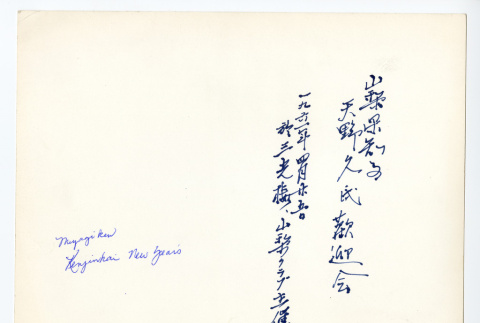 山梨県知事
天野久氏歓迎会
一九六一年四月廿一日
於三光楼、山梨クラブ主催
Miyagi Ken
Kenjinkai New Years